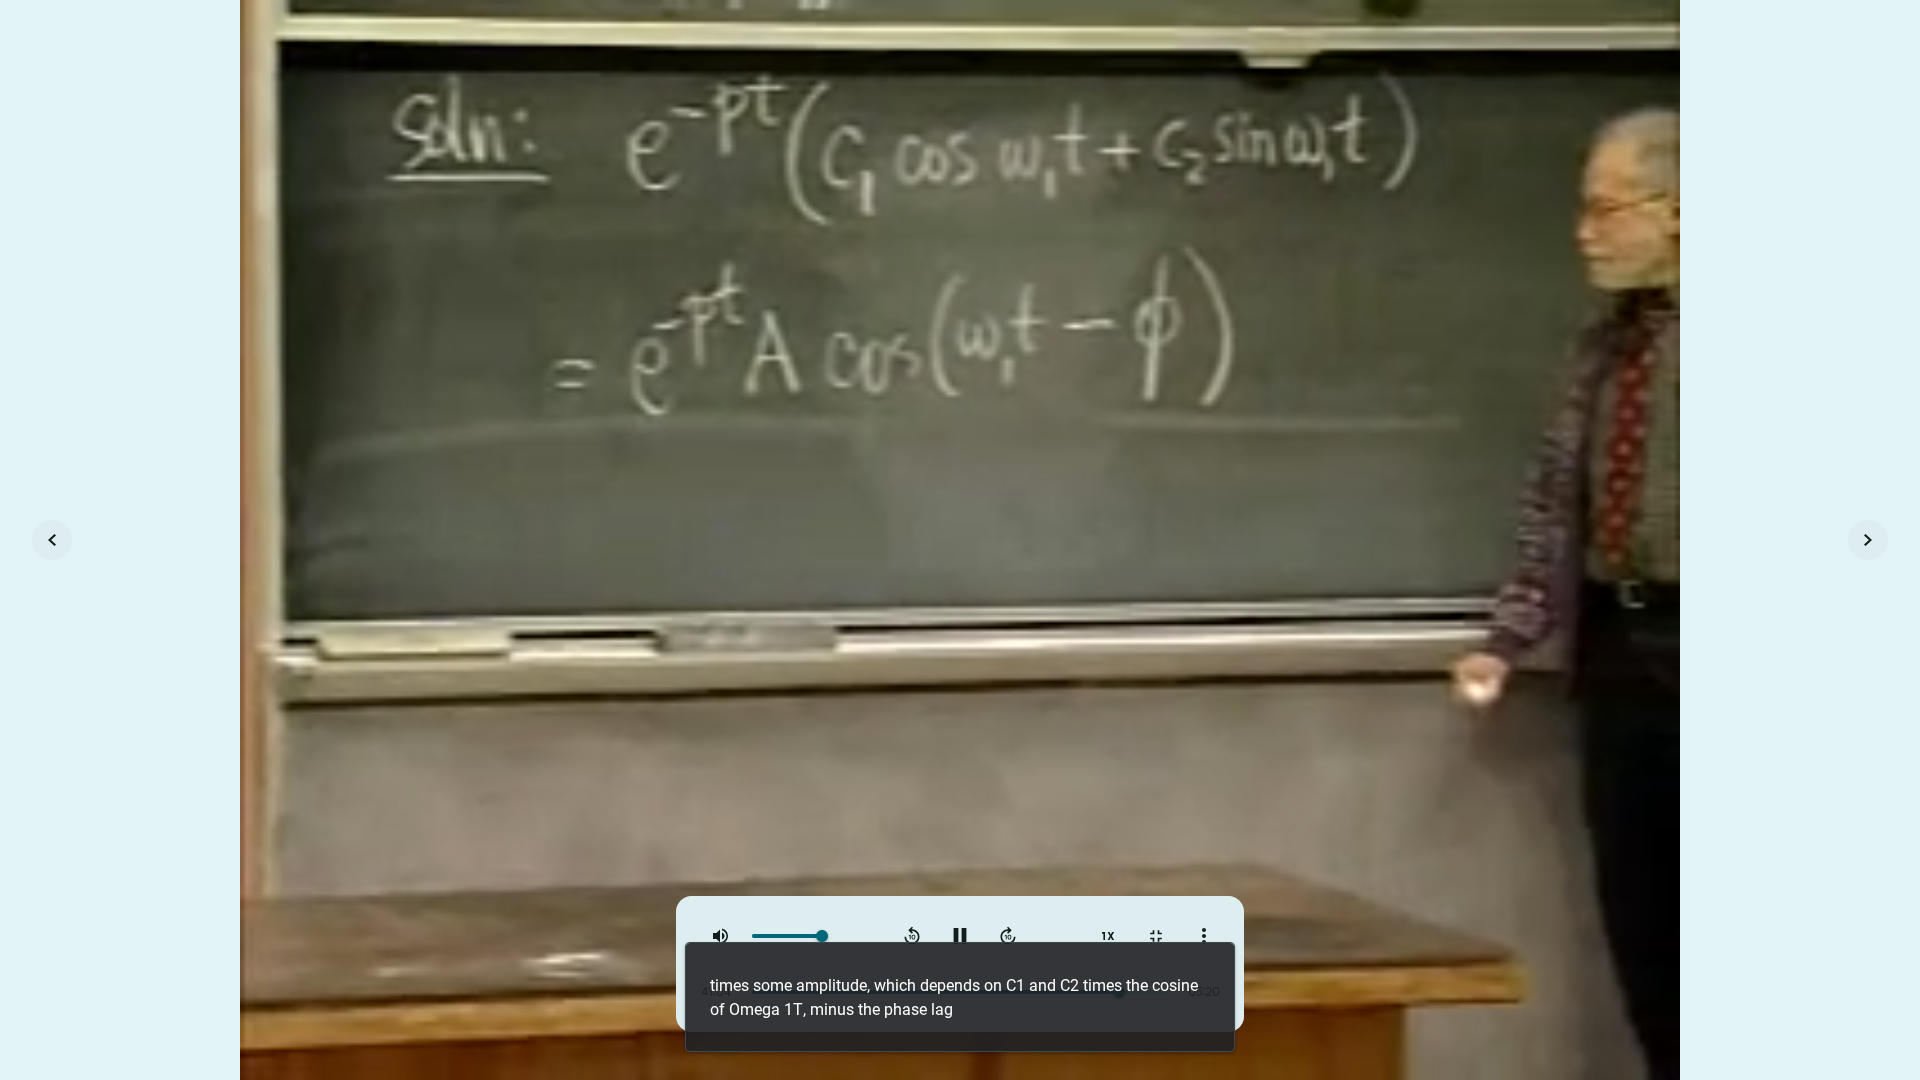 Soln: e^{-pt}(c₁ cos ω₁t + c₂ sin ω₁t)
= e^{-pt} A cos(ω₁t − ϕ)
10
10
1X
times some amplitude, which depends on C1 and C2 times the cosine
of Omega 1T, minus the phase lag